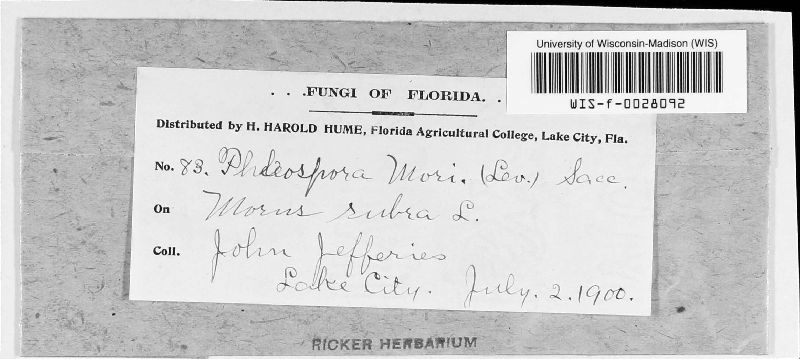 University of Wisconsin-Madison (WIS)
WIS-f-0028092
. . .FUNGI OF FLORIDA. .
Distributed by H. HAROLD HUME, Florida Agricultural College, Lake City, Fla.
No. 83. Phleospora Mori. (Lev.) Sacc.
On Morus rubra L.
Coll. John Jefferies
Lake City. July. 2. 1900.
RICKER HERBARIUM